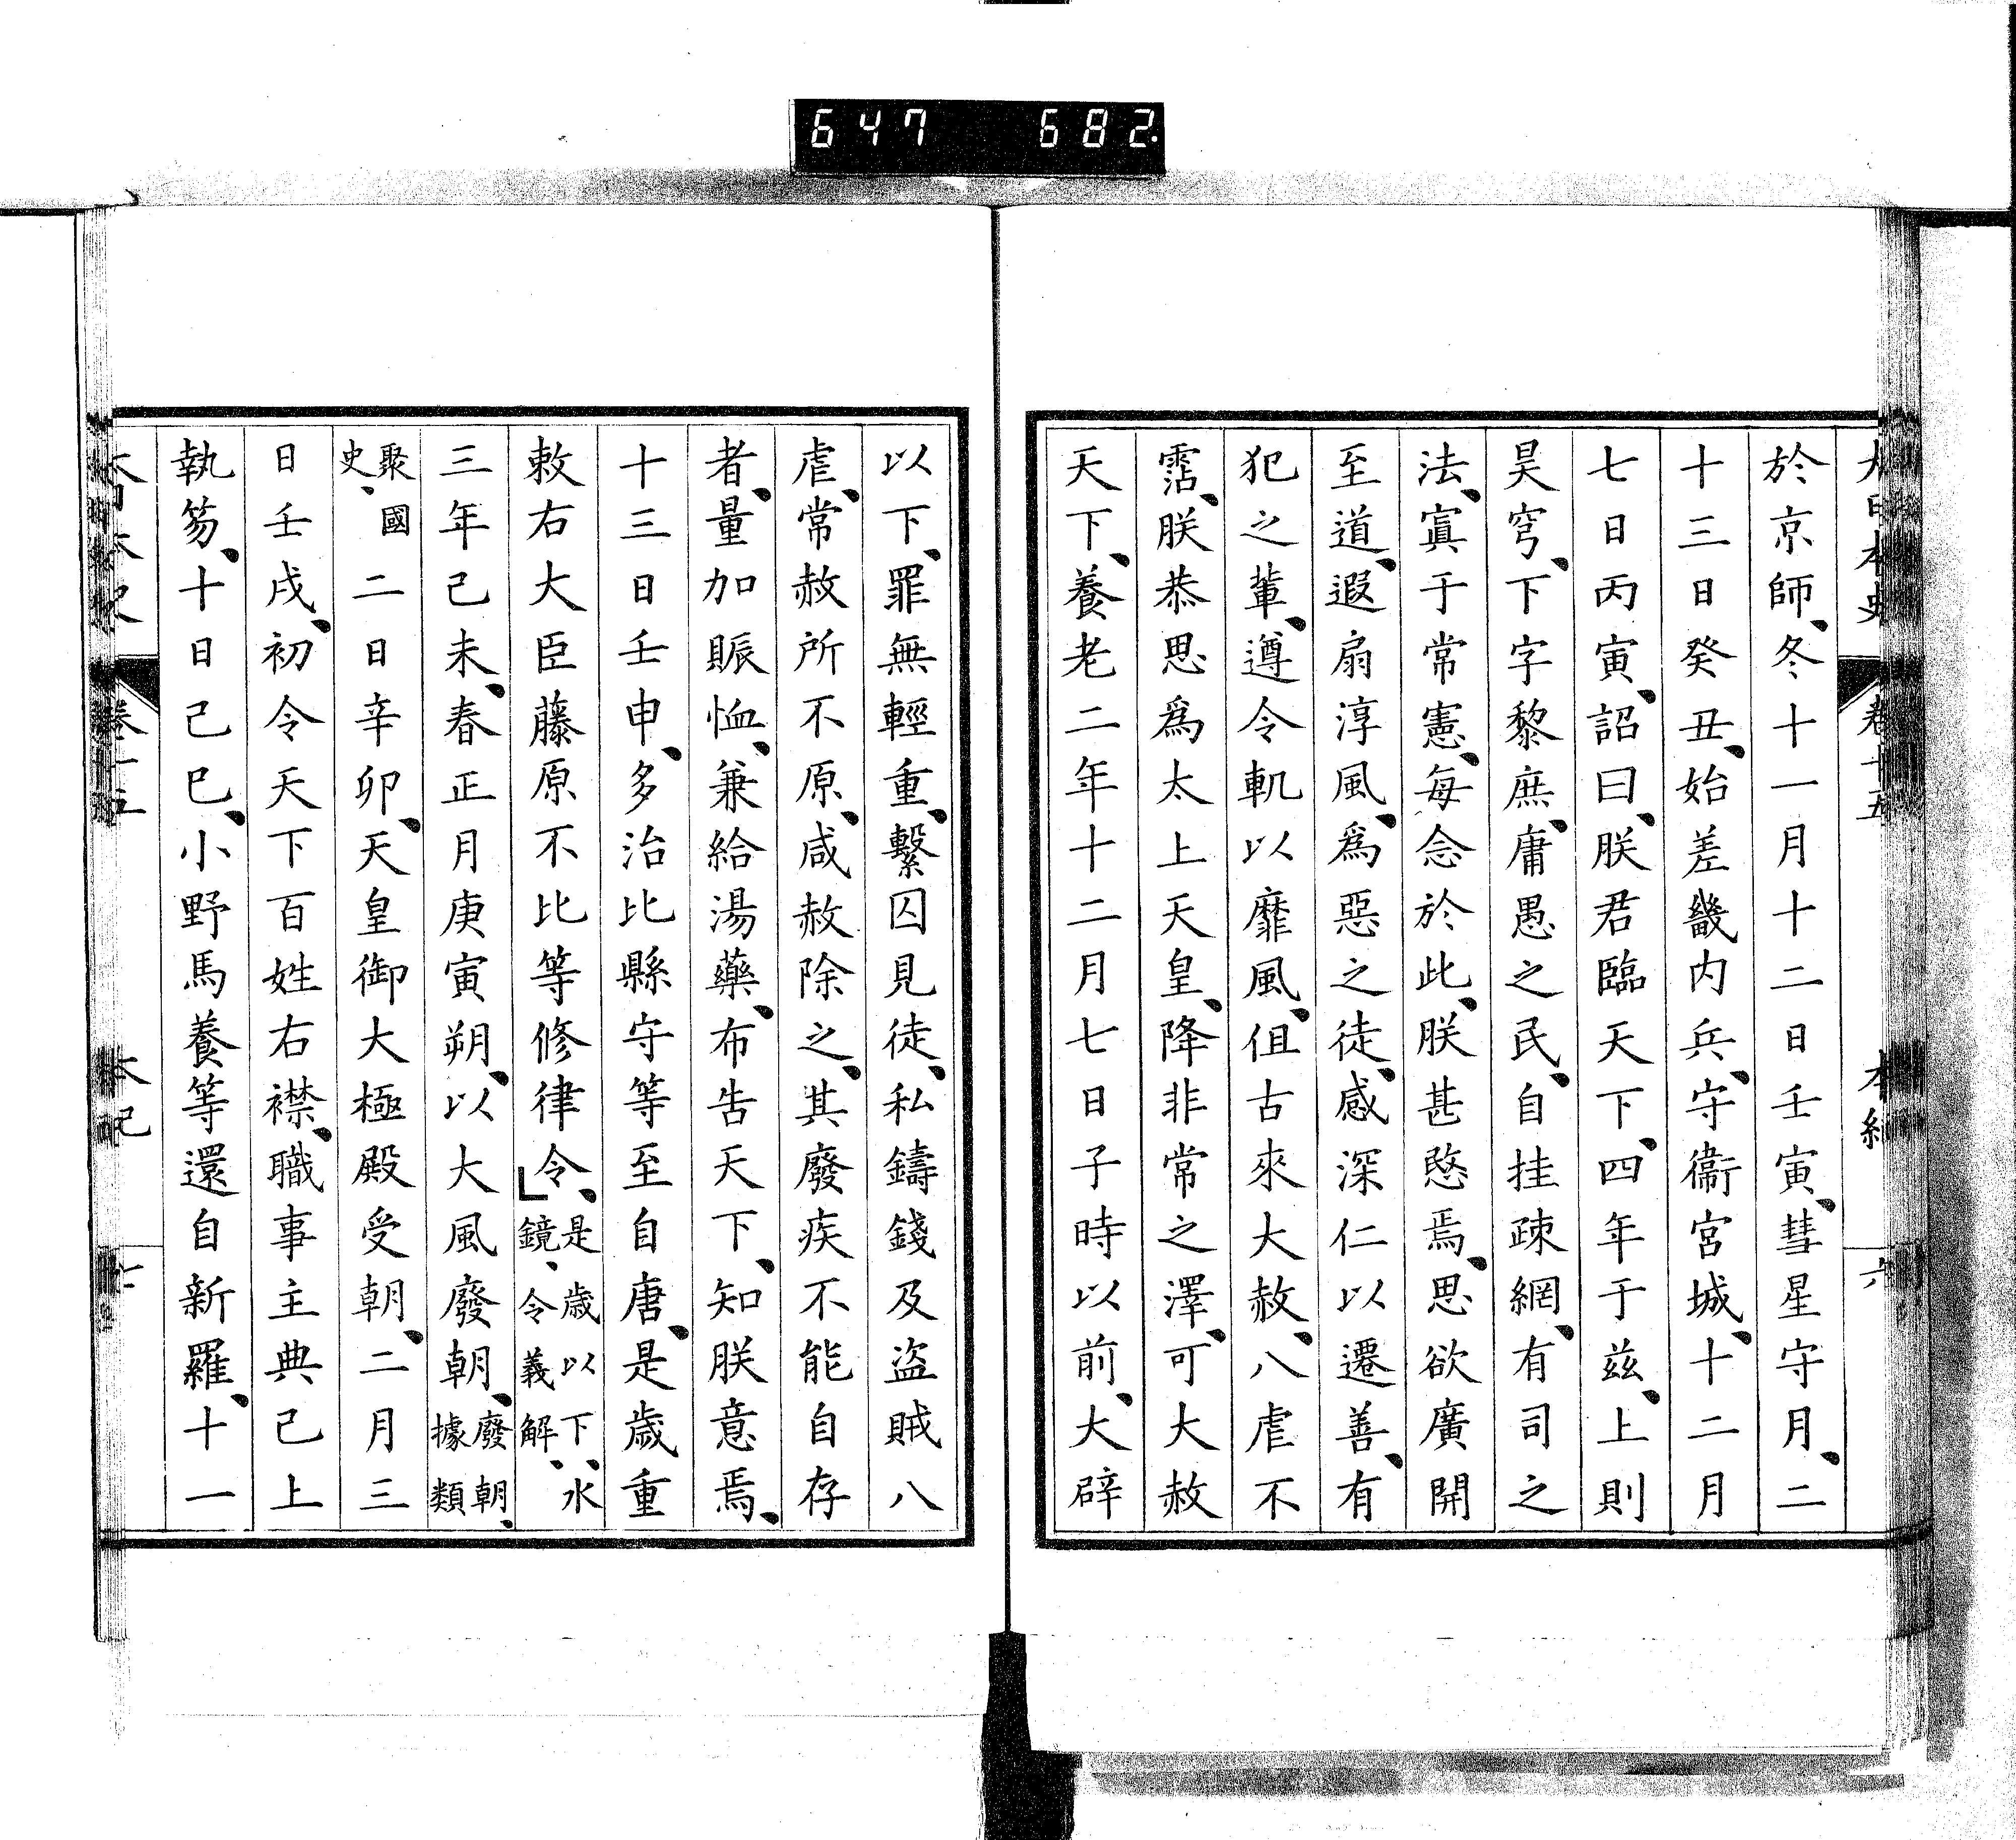 647 682.
大日本史 卷十五 本紀 六
於京師、冬十一月十二日壬寅、彗星守月、二
十三日癸丑、始差畿内兵、守衞宮城、十二月
七日丙寅、詔曰、朕君臨天下、四年于兹、上則
昊穹、下字黎庶、庸愚之民、自挂疎網、有司之
法、寘于常憲、每念於此、朕甚愍焉、思欲廣開
至道、遐扇淳風、爲惡之徒、感深仁以遷善、有
犯之輩、遵令軌以靡風、但古來大赦、八虐不
霑、朕恭思爲太上天皇、降非常之澤、可大赦
天下、養老二年十二月七日子時以前、大辟
以下、罪無輕重、繫囚見徒、私鑄錢及盜賊八
虐、常赦所不原、咸赦除之、其廢疾不能自存
者、量加賑恤、兼給湯藥、布告天下、知朕意焉、
十三日壬申、多治比縣守等至自唐、是歲重
敕右大臣藤原不比等修律令、是歲以下、水鏡、令義解、
三年己未、春正月庚寅朔、以大風廢朝、廢朝、據類
聚國史、二日辛卯、天皇御大極殿受朝、二月三
日壬戌、初令天下百姓右襟、職事主典已上
執笏、十日己巳、小野馬養等還自新羅、十一
大日本史 卷十五 本紀 七